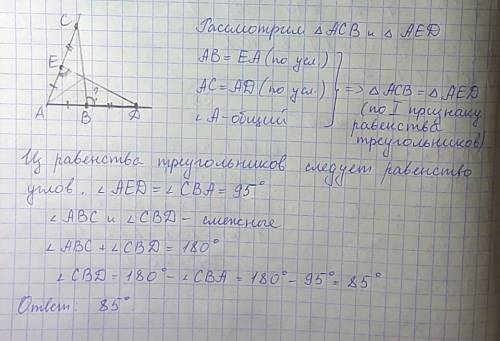 C
E
A
B
?
D
Рассмотрим △ACB и △AED
AB = EA (по усл.)
AC = AD (по усл.)
∠A - общий
=> △ACB = △AED
(по I признаку
равенства
треугольников)
Из равенства треугольников следует равенство
углов. ∠AED = ∠CBA = 95°
∠ABC и ∠CBD - смежные
∠ABC + ∠CBD = 180°
∠CBD = 180° - ∠CBA = 180° - 95° = 85°
Ответ: 85°.